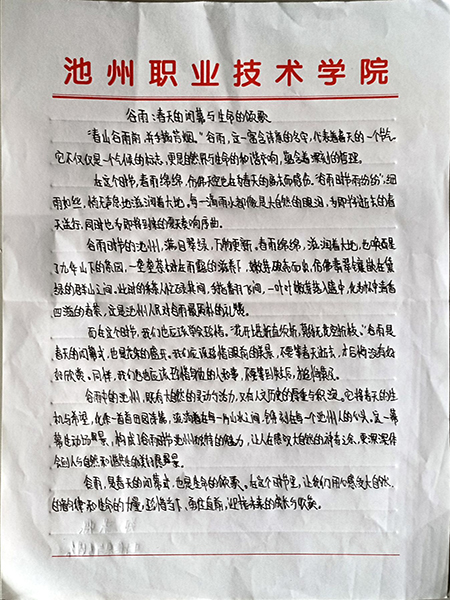 池州职业技术学院
谷雨：春天的闭幕与生命的颂歌
"春山谷雨前，并手摘芳烟。"谷雨，这一富含诗意的名字，代表着春天的一个节气
它不仅仅是一个气候的标志，更是自然界与生命的和谐交响，蕴含着深刻的哲理。
在这个时节，春雨绵绵，仿佛
谷雨时节雨纷纷"，细
雨如丝，悄无声息地滋润着大地。每一滴雨水都像是大自然的
天送行，同时也为即将到来的夏天奏响序曲。
谷雨时节的池州，满目翠绿，万物更新。春雨绵绵，滋润着大地，也唤醒
了九华山下的茶园，一垄垄茶树在雨露的滋养下，嫩芽破壳而出，仿佛翡翠镶嵌在
绿的群山之间。此时的采茶人忙碌其间，
一叶叶嫩芽落入篮中，化为
四溢的春茶，这是池州人民对谷雨最
的礼赞。
而在这个时节，我们也应该学会珍惜。"花开堪折直须折，莫待无花空折枝。"谷雨是
春天的闭幕式，也是
我们应该珍惜眼前的美景，不要等春天逝去，才后悔没有好
好欣赏。同样，我们也应该珍惜身边的人和事，不要等到失去后，才
谷雨中的池州，既有大自然的灵动与活力，又有人文历史的厚重与积淀。它将春天的生
机与希望，化作一首首田园诗篇，流淌在每一片山水之间，
在每一个池州人的心头。这一幕
幕生动的风景，构成了谷雨时节池州独特的魅力，让人在感叹大自然的神奇之余，更深深体
会到人与自然和谐共生的美好愿景。
谷雨，是春天的闭幕式，也是生命的颂歌。在这个时节里，让我们用心感受大自然
的韵律和生命的力量，珍惜当下，勇往直前，迎接未来的
与收获。